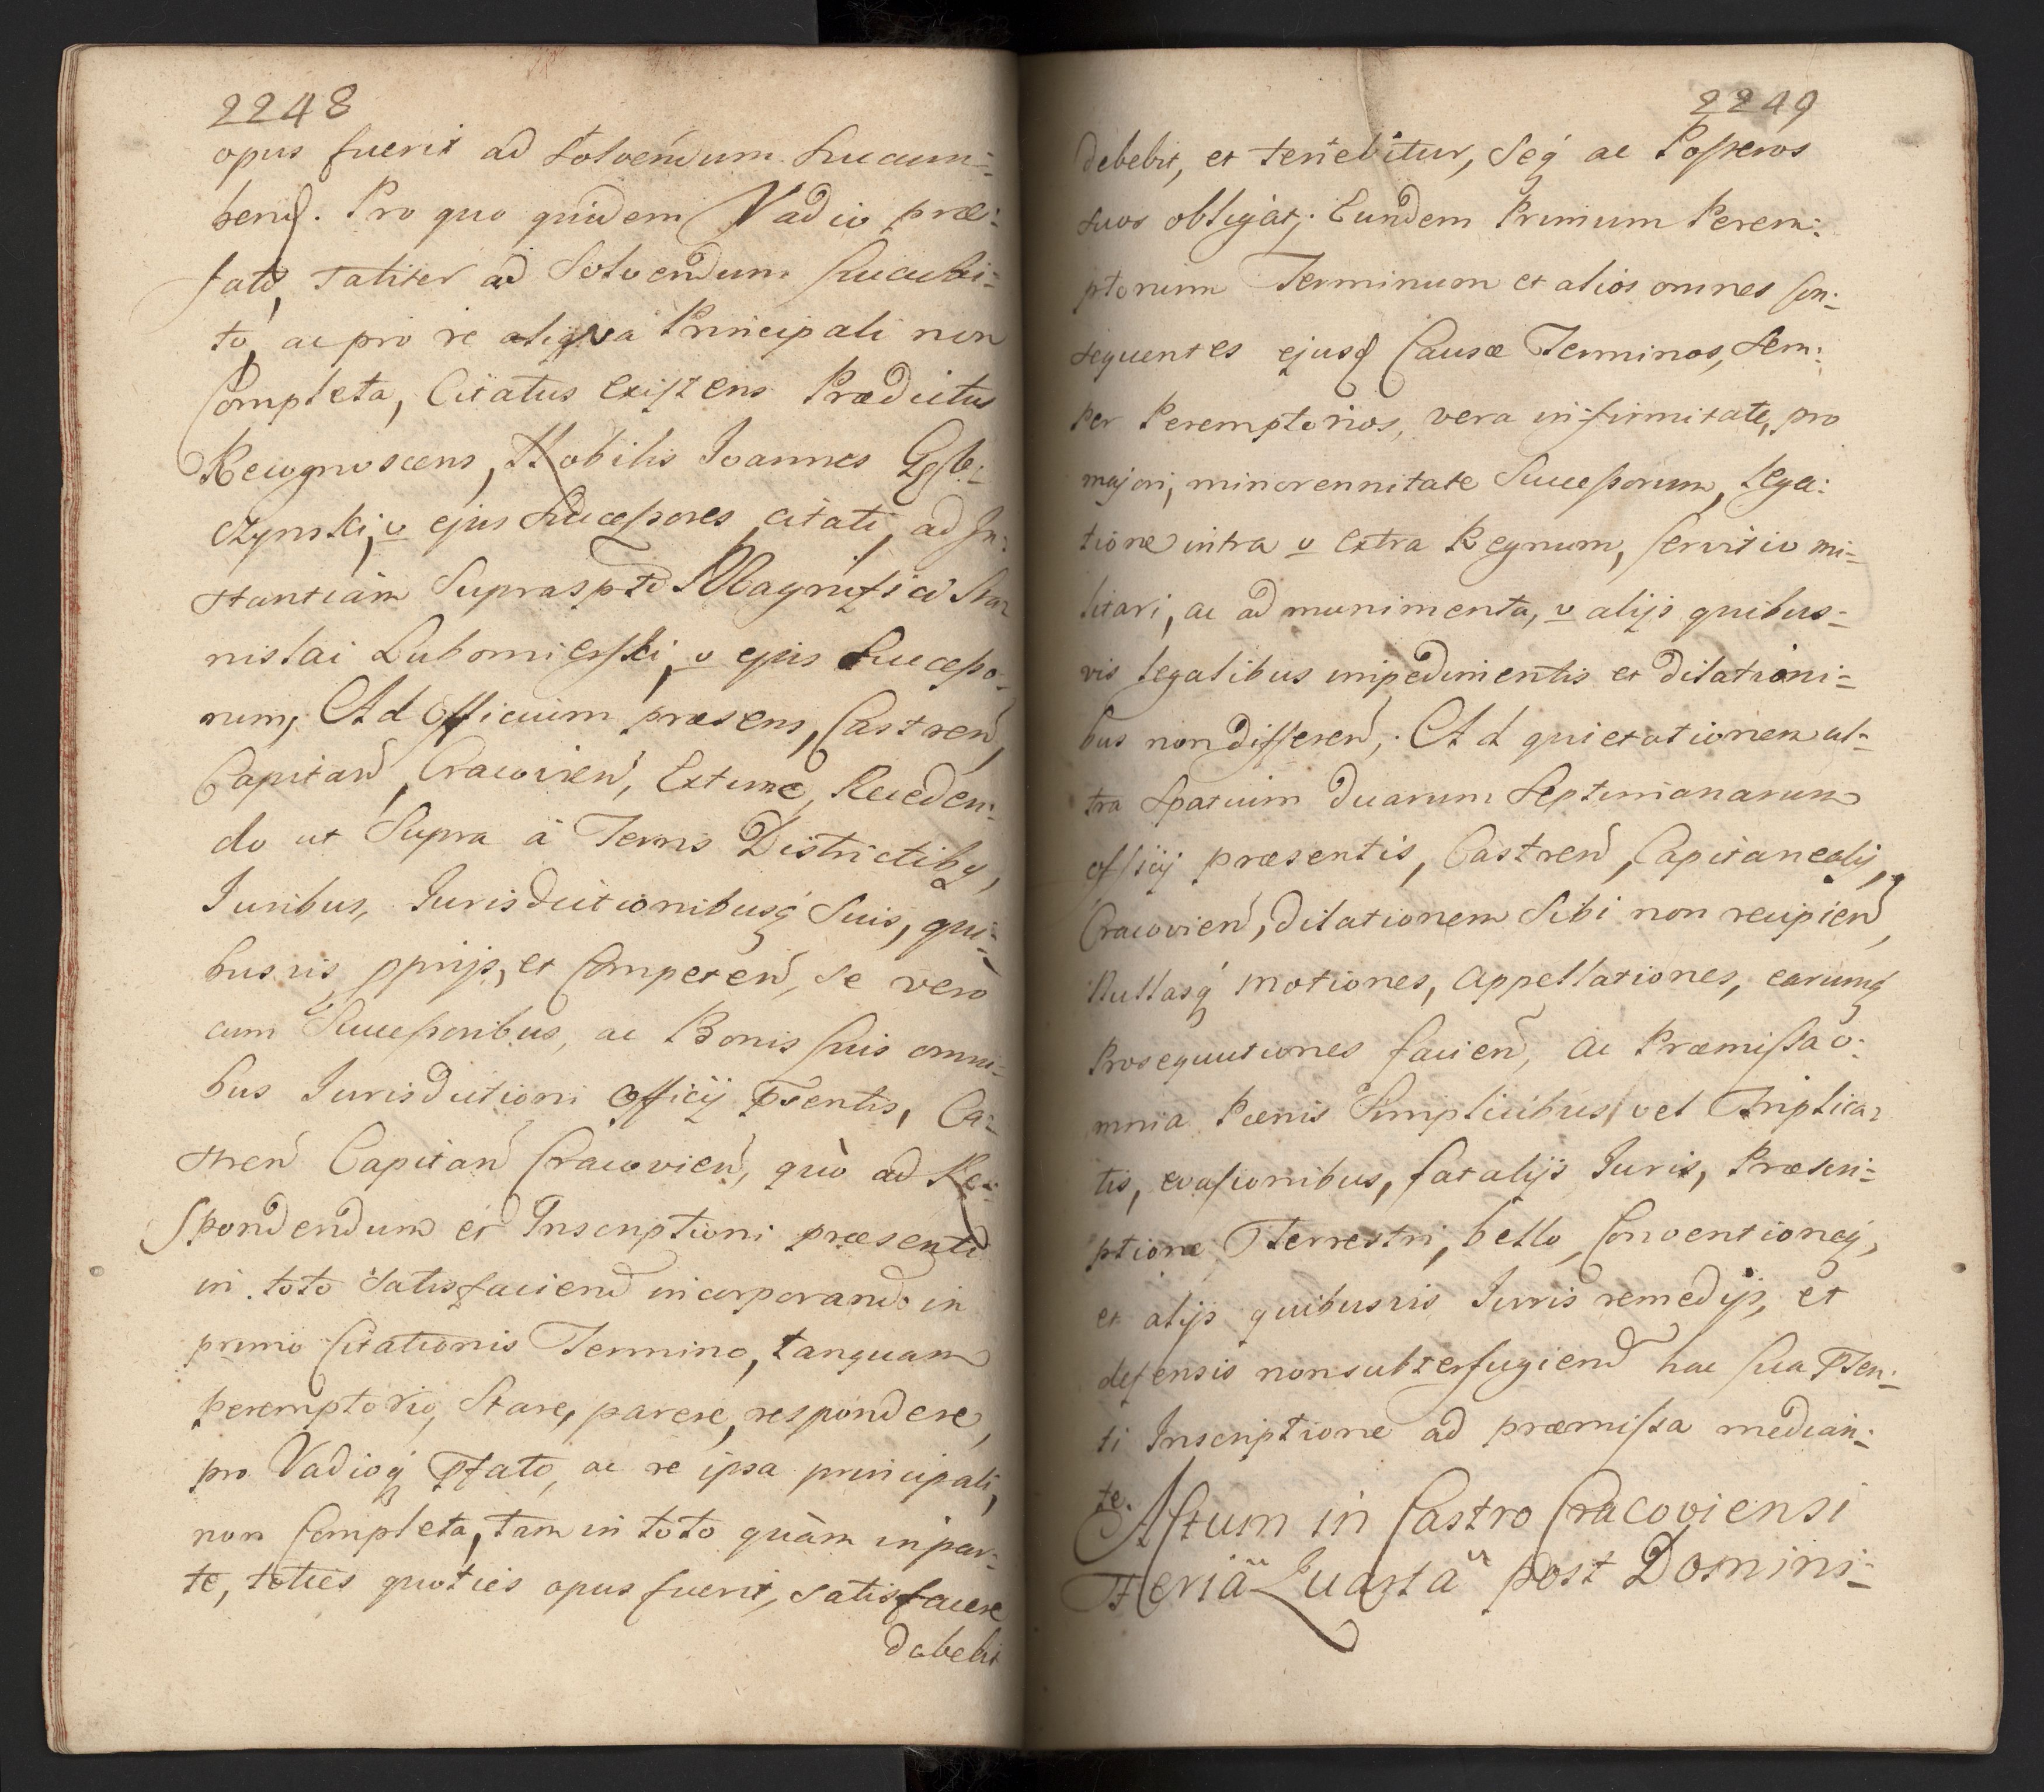 2248
opus fuerit ad Solvendum Sucum-
ben. Pro quo quidem Vadio præ-
fato, taliter ad Solvendum Succubi-
to, ac pro re aliqva Principali non
Completa, Citatus existens Prædictus
Recognoscens, Nobilis Joannes
czynski, v ejus Successores citati, ad In-
stantiam Suprasptõ Magnifici Sta-
nislai Lubomierski, v ejus Successo-
rum, Ad Officium præsens, Castren,
Capitan, Cracovien, Extunc, Receden-
do ut Supra à Terris Districtibq,
Juribus, Jurisdictionibusq Suis, qui-
busvis pprijs, et Competen, Se verò
cum Successoribus, ac Bonis Suis omni-
bus Jurisdictioni Officij Psentis, Ca-
stren Capitan Cracovien, quò ad Re-
spondendum et Inscriptioni præsenti
in toto Satisfaciend incorporando in
primo Citationis Termino, tanquam
peremptorio, Stare, parere, respondere,
pro Vadioq Pfato, ac re ipsa principali,
non Completa, tam in toto quàm in par-
te, toties quoties opus fuerit, Satisfacere
debebit
2249
debebit, et tenebitur, Seq ac Posteros
Suos obligat; Eundem Primum Perem-
ptorium Terminum et alios omnes Con-
sequentes ejusd Causæ Terminos, Sem-
per Peremptorios, vera infirmitate, pro
majori, minorennitate Successorum, lega-
tione intra v extra Regnum, Servitio mi-
litari, ac ad munimenta, v alijs quibus-
vis legalibus impedimentis et dilationi-
bus non differen; Ad quietationem ul-
tra Spatium duarum Septimanarum
officij præsentis, Castren, Capitanealij,
Cracovien, dilationem Sibi non recipien,
Nullasq motiones, Appellationes, earumq
Prosequutiones facien, Ac Præmissa o-
mnia Pænis Simplicibus, vel Triplica-
tis, evasionibus, fatalijs Juris, Præscri-
ptione Terrestri, bello, Conventioneq,
et alijs quibusvis Juris remedijs, et
defensis non subterfugiend hac Sua Psen-
ti Inscriptione ad præmissa median-
te.
Actum in Castro Cracoviensi
Feriâ Quartâ post Domini-